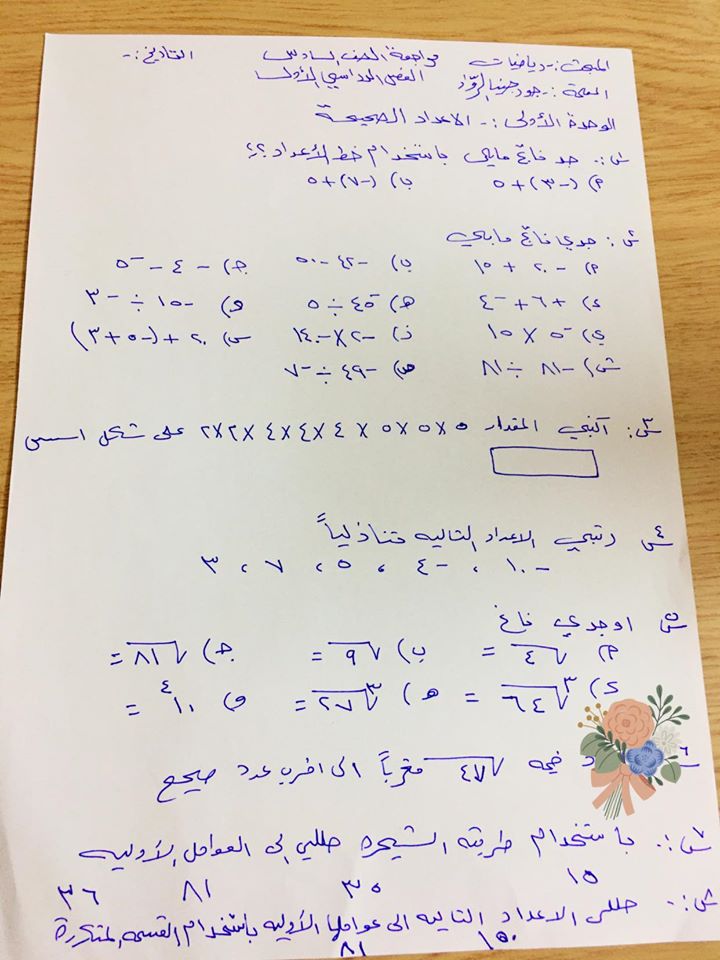 المبحث :- رياضيات مراجعة الصف السادس التاريخ :-
المعلمة :- جود حرب الرواد الفصل الدراسي الأول
الوحدة الأولى :- الاعداد الصحيحة
س١:. جد ناتج مايلي باستخدام خط الأعداد ؟؟
م) (-٣)+٥ ب) (-٧)+٥
س٢: جدي ناتج مايلي
م) -٢٠ + ١٥ ب) -٤٢ -٥٠ ج) -٤ - -٥
د) +٦ + -٤ هـ) -٤٥ ÷ ٥ و) -١٥٠ ÷ -٣
ي) -٥ × ١٥ ذ) -٢ × -١٤٠ س) ٢٠ + (-٥ + ٣)
ش) -٨١ ÷ ٨١ ص) -٤٩ ÷ -٧
س٣: اكتبي المقدار ٥ × ٥ × ٥ × ٤ × ٤ × ٤ × ٢ × ٢ على شكل اسسي
س٤ رتبي الاعداد التاليه تنازلياً
-١٠ ، -٤ ، ٥ ، ٧ ، ٣
س٥ اوجدي ناتج
م) √٤ = ب) √٩ = ج) √٨١ =
د) ∛٦٤ = هـ) ∛٢٧ = و) ١٠⁴ =
س٦ د قيمه √٤٧ مقرباً الى اقرب عدد صحيح
س٧:. باستخدام طريقه الشجره حللي الى العوامل الأوليه
١٥ ٣٥ ٨١ ٣٦
س:- حللي الاعداد التاليه الى عواملها الأوليه باستخدام القسمه المتكررة
١٥٠ ٨١